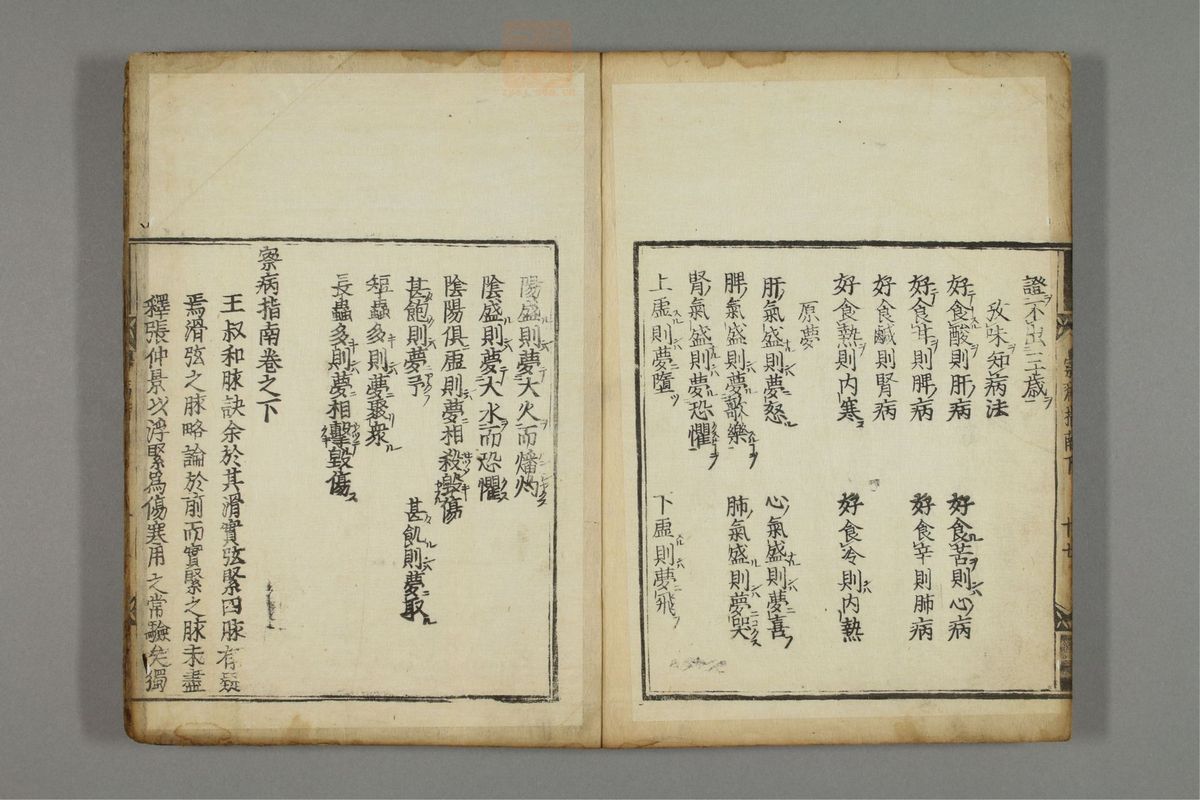 證不出三十歲
攷味知病法
好食酸則肝病　好食苦則心病
好食甘則脾病　好食辛則肺病
好食鹹則腎病
好食熱則內寒　好食冷則內熱
原夢
肝氣盛則夢怒　心氣盛則夢喜
脾氣盛則夢歌樂　肺氣盛則夢哭
腎氣盛則夢恐懼
上虛則夢墮　下虛則夢飛
陽盛則夢大火而燔灼
陰盛則夢大水而恐懼
陰陽俱虛則夢相殺毀傷
甚飽則夢予　甚飢則夢取
短蟲多則夢聚衆
長蟲多則夢相擊毀傷
察病指南卷之下
王叔和脉訣余於其滑實弦緊四脉有疑
焉滑弦之脉略論於前而實緊之脉未盡
釋張仲景以浮緊爲傷寒用之常驗矣獨